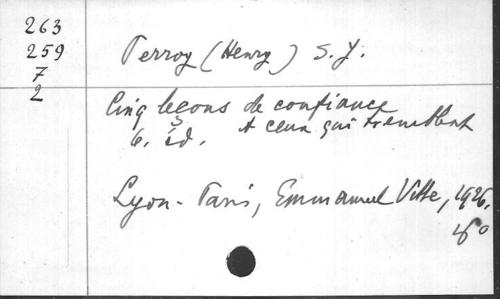 263
259
7
2
Perroy (Henry) S. J.
Cinq leçons de confiance
6. éd. A ceux qui tremblent
Lyon - Paris, Emmanuel Vitte, 1926.
8°